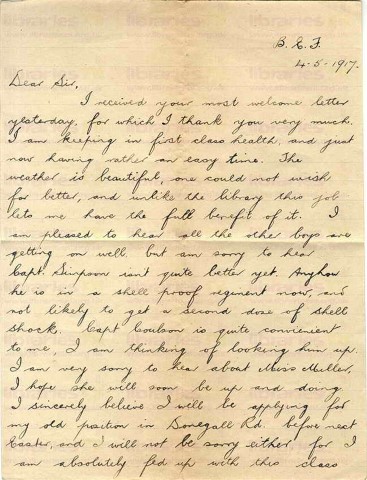 B. E. F.
4-5-1917.
Dear Sir,
I received your most welcome letter
yesterday, for which I thank you very much.
I am keeping in first class health, and just
now having rather an easy time. The
weather is beautiful, one could not wish
for better, and unlike the library this job
lets me have the full benefit of it. I
am pleased to hear all the other boys are
getting on well, but am sorry to hear
Capt. Simpson isnt quite better yet. Anyhow
he is in a shell proof regiment now, and
not likely to get a second dose of shell
shock. Capt Coulson is quite convienient
to me, I am thinking of looking him up.
I am very sorry to hear about Miss Muller,
I hope she will soon be up and doing.
I sincerely believe I will be applying for
my old position in Donegall Rd. before next
Easter, and I will not be sorry either for I
am absolutely fed up with this class